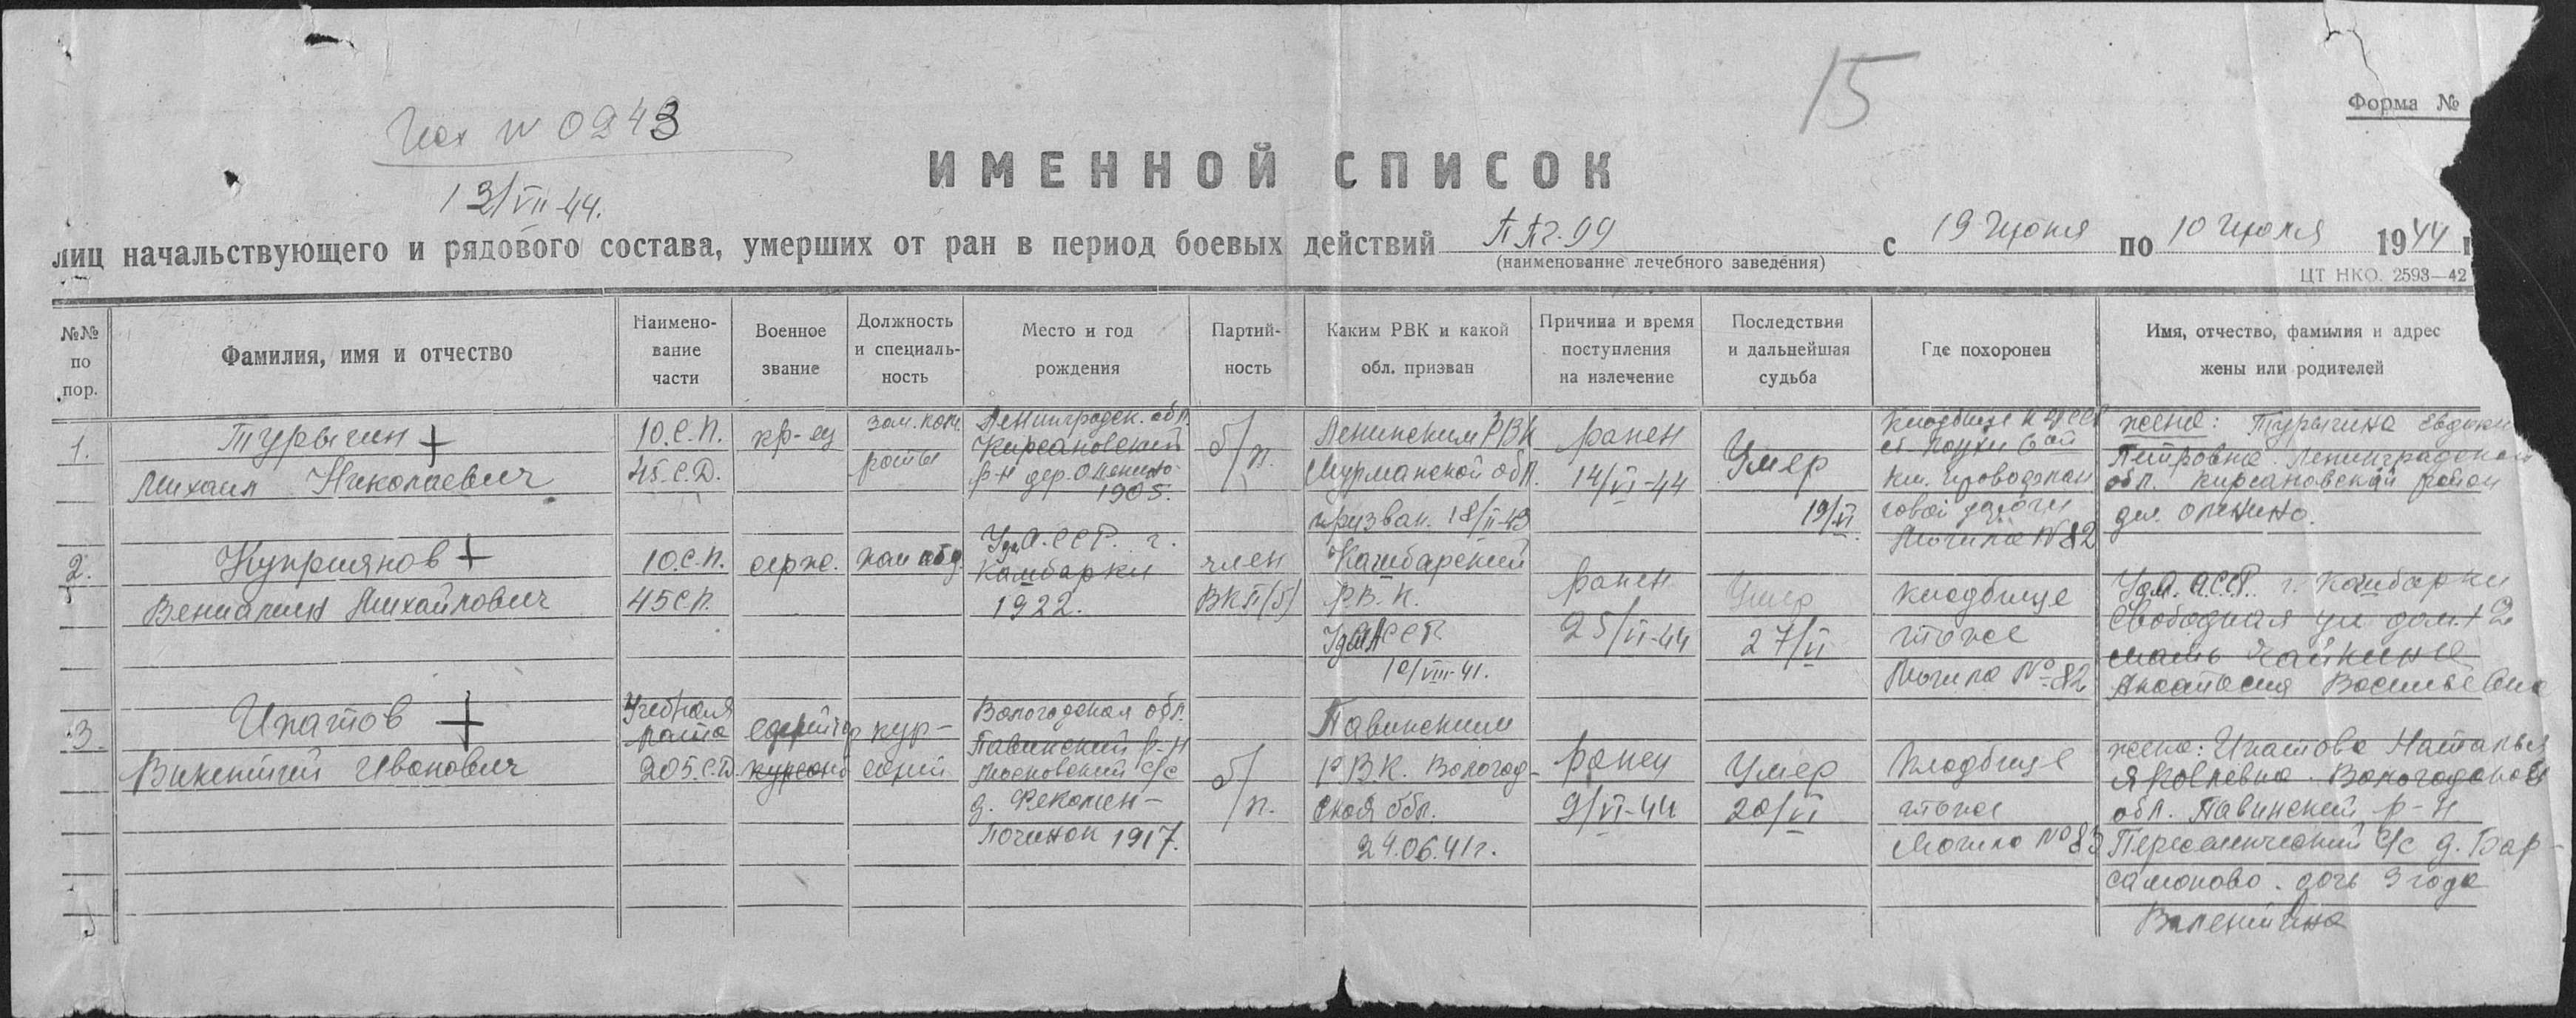 15
Форма №
Исх № 0943
13/VII-44.
ИМЕННОЙ СПИСОК
лиц начальствующего и рядового состава, умерших от ран в период боевых действий ППГ.99 с 19 Июня по 10 Июля 1944 г
(наименование лечебного заведения)
ЦТ НКО. 2593—42
№№ по пор.
Фамилия, имя и отчество
Наимено-
вание
части
Военное
звание
Должность
и специаль-
ность
Место и год
рождения
Партий-
ность
Каким РВК и какой
обл. призван
Причина и время
поступления
на излечение
Последствия
и дальнейшая
судьба
Где похоронен
Имя, отчество, фамилия и адрес
жены или родителей
1.
Турыгин +
Михаил Николаевич
10.С.П.
45.С.Д.
кр-ец
зам. ком.
роты
Ленинградск. обл.
Кирсановский
р-н дер. Оленино
1905.
б/п.
Ленинским РВК
Мурманской обл.
призван. 18/II-43
ранен
14/VI-44
Умер
19/VI.
Кладбище
6 ой
км.
Могила №82
жена: Турыгина Евдоки
Петровна. Ленинградская
обл. Кирсановский район
дер. Оленино.
2.
Куприянов +
Вениамин Михайлович
10.С.П.
45С.П.
серж.
ком отд.
Удм.А.ССР. г.
Камбарки
1922.
член
ВКП(б)
Камбарский
Р.В.К.
УдмАССР
10/VIII-41.
ранен
25/VI-44
Умер
27/VI
кладбище
тоже
Могила №82
Удм. АССР. г. Камбарки
Свободная ул дом.
мать Чайкина
Анастасия Васильевна
3.
Ипатов +
Викентий Иванович
Учебная
рота
205.С.Д.
ефрейтор
курсант
кур-
сант
Вологодская обл.
Павинский р-н
Московский с/с
д.
Починок 1917.
б/п.
Павинским
Р.В.К. Вологод-
ской обл.
24.06.41г.
ранен
9/VI-44
Умер
20/VI
Кладбище
тоже
Могила №83
жена: Ипатова Наталья
Яковлевна. Вологодской
обл. Павинский р-н
с/с д. Вар-
самоново. дочь 3 года
Валентина